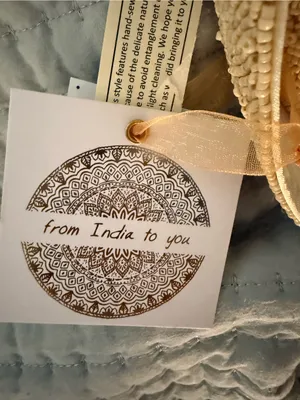 s style features hand-sew
cause of the delicate natu
e to avoid entanglement
light cleaning. We hope y
ch as did bringing it to y
from India to you